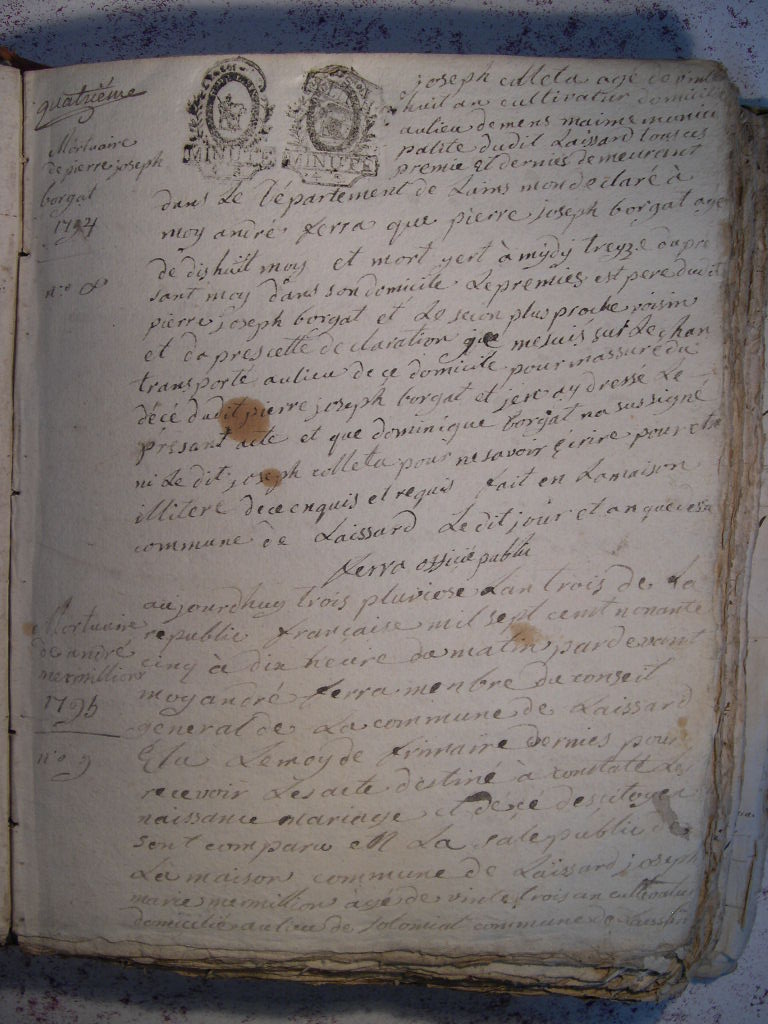 quatrième
Mortuaire
de pierre joseph
borgat
1794
n.o 8
MINUTE
MINUTE
joseph colleta agé de vinte
huit an cultivatur domicilié
au lieu de mens maime munici
palité dudit Laissard tous ces
premie et dernies demeurant
dans Le Département de Lains mon declaré à
moy andré ferra que pierre joseph borgat agé
de dishuit moy et mort yert à mydy treyze du pre
sant moy dans son domicile Le premier est pere dudit
pierre joseph borgat et Le secon plus proche voisin
et daprescette declaration que mesuis sur Le chan
transporté au lieu de ce domicile pour massuré du
décé dudit pierre joseph borgat et jere ay dressé Le
presant acte et que dominique borgat na sussigné
ni Le dit joseph colleta pour ne savoir Ecrire pour etre
illitere dece enquis et requis fait en Lamaison
commune de Laissard Ledit jour et an que dessu
ferra officié publu
Mortuaire
de andré
mermillion
1795
n.o 9
aujourdhuy trois pluviose Lan trois de La
republie française mil sept cent nonante
cinq à dix heure du matin par devant
moy andré ferra menbre du conseil
general de La commune de Laissard
Elu Lemoy de frimaire dernies pour
recevoir Les acte destiné à constaté Les
naissance mariage et décé des citoyen
sont comparu en La sale public de
La maison commune de Laissard joseph
marie mermillion agé de vinte trois an cultivatur
domicilié au lieu de solomiat commune de Laissard